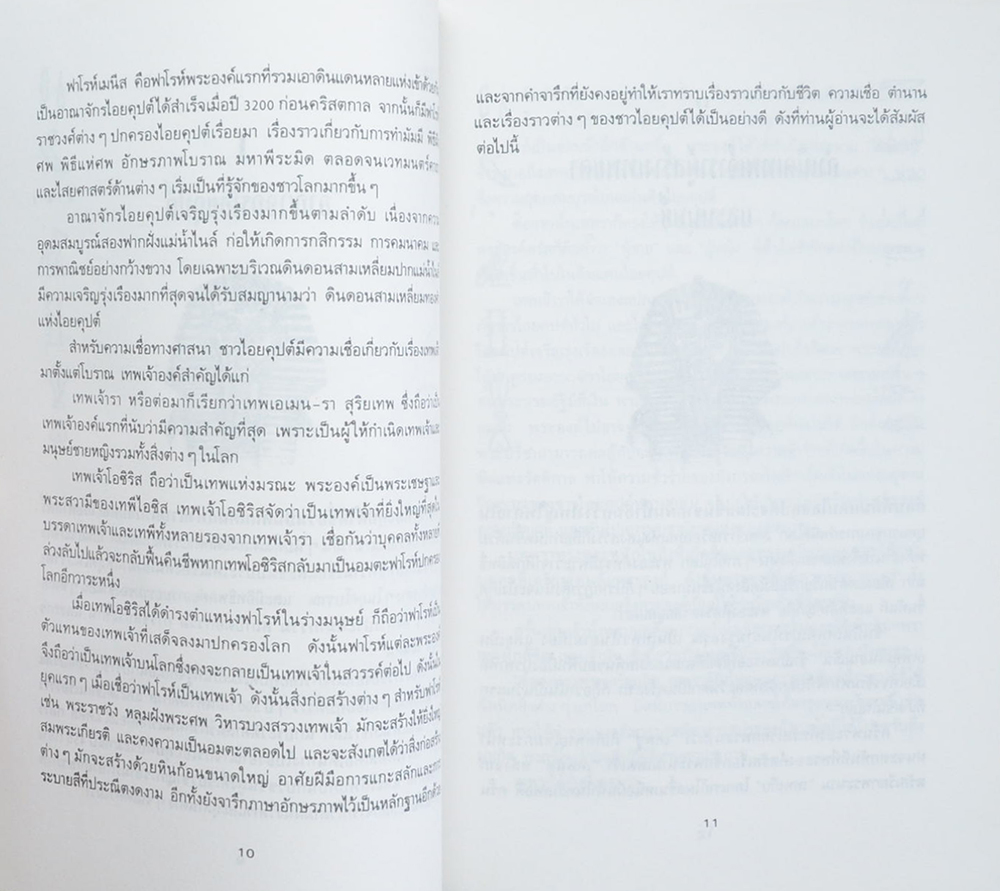 ฟาโรห์เมนีส คือฟาโรห์พระองค์แรกที่รวมเอาดินแดนหลายแห่งเข้าด้วยกัน
เป็นอาณาจักรไอยคุปต์ได้สำเร็จเมื่อปี 3200 ก่อนคริสตกาล จากนั้นก็มีฟาโรห์
ราชวงศ์ต่าง ๆ ปกครองไอยคุปต์เรื่อยมา เรื่องราวเกี่ยวกับการทำมัมมี่ พิธี
ศพ พิธีแห่ศพ อักษรภาพโบราณ มหาพีระมิด ตลอดจนเวทมนตร์คาถา
และไสยศาสตร์ด้านต่าง ๆ เริ่มเป็นที่รู้จักของชาวโลกมากขึ้น ๆ
อาณาจักรไอยคุปต์เจริญรุ่งเรืองมากขึ้นตามลำดับ เนื่องจากความ
อุดมสมบูรณ์สองฟากฝั่งแม่น้ำไนล์ ก่อให้เกิดการกสิกรรม การคมนาคม และ
การพาณิชย์อย่างกว้างขวาง โดยเฉพาะบริเวณดินดอนสามเหลี่ยมปากแม่น้ำไนล์
มีความเจริญรุ่งเรืองมากที่สุดจนได้รับสมญานามว่า ดินดอนสามเหลี่ยมทองคำ
แห่งไอยคุปต์
สำหรับความเชื่อทางศาสนา ชาวไอยคุปต์มีความเชื่อเกี่ยวกับเรื่องเทพเจ้า
มาตั้งแต่โบราณ เทพเจ้าองค์สำคัญได้แก่
เทพเจ้ารา หรือต่อมาก็เรียกว่าเทพเอเมน-รา สุริยเทพ ซึ่งถือว่าเป็น
เทพเจ้าองค์แรกที่นับว่ามีความสำคัญที่สุด เพราะเป็นผู้ให้กำเนิดเทพเจ้าและ
มนุษย์ชายหญิงรวมทั้งสิ่งต่าง ๆ ในโลก
เทพเจ้าโอซิริส ถือว่าเป็นเทพแห่งมรณะ พระองค์เป็นพระเชษฐาและ
พระสวามีของเทพีไอซิส เทพเจ้าโอซิริสจัดว่าเป็นเทพเจ้าที่ยิ่งใหญ่ที่สุดใน
บรรดาเทพเจ้าและเทพีทั้งหลายรองจากเทพเจ้ารา เชื่อกันว่าบุคคลทั้งหลายที่
ล่วงลับไปแล้วจะกลับฟื้นคืนชีพหากเทพโอซิริสกลับมาเป็นอมตะฟาโรห์ปกครอง
โลกอีกวาระหนึ่ง
เมื่อเทพโอซิริสได้ดำรงตำแหน่งฟาโรห์ในร่างมนุษย์ ก็ถือว่าฟาโรห์เป็น
ตัวแทนของเทพเจ้าที่เสด็จลงมาปกครองโลก ดังนั้นฟาโรห์แต่ละพระองค์
จึงถือว่าเป็นเทพเจ้าบนโลกซึ่งคงจะกลายเป็นเทพเจ้าในสวรรค์ต่อไป ดังนั้นใน
ยุคแรก ๆ เมื่อเชื่อว่าฟาโรห์เป็นเทพเจ้า ดังนั้นสิ่งก่อสร้างต่าง ๆ สำหรับฟาโรห์
เช่น พระราชวัง หลุมฝังพระศพ วิหารบวงสรวงเทพเจ้า มักจะสร้างให้ยิ่งใหญ่
สมพระเกียรติ และคงความเป็นอมตะตลอดไป และจะสังเกตได้ว่าสิ่งก่อสร้าง
ต่าง ๆ มักจะสร้างด้วยหินก้อนขนาดใหญ่ อาศัยฝีมือการแกะสลักและการ
ระบายสีที่ประณีตงดงาม อีกทั้งยังจารึกภาษาอักษรภาพไว้เป็นหลักฐานอีกด้วย
10
และจากคำจารึกที่ยังคงอยู่ทำให้เราทราบเรื่องราวเกี่ยวกับชีวิต ความเชื่อ ตำนาน
และเรื่องราวต่าง ๆ ของชาวไอยคุปต์ได้เป็นอย่างดี ดังที่ท่านผู้อ่านจะได้สัมผัส
ต่อไปนี้
11